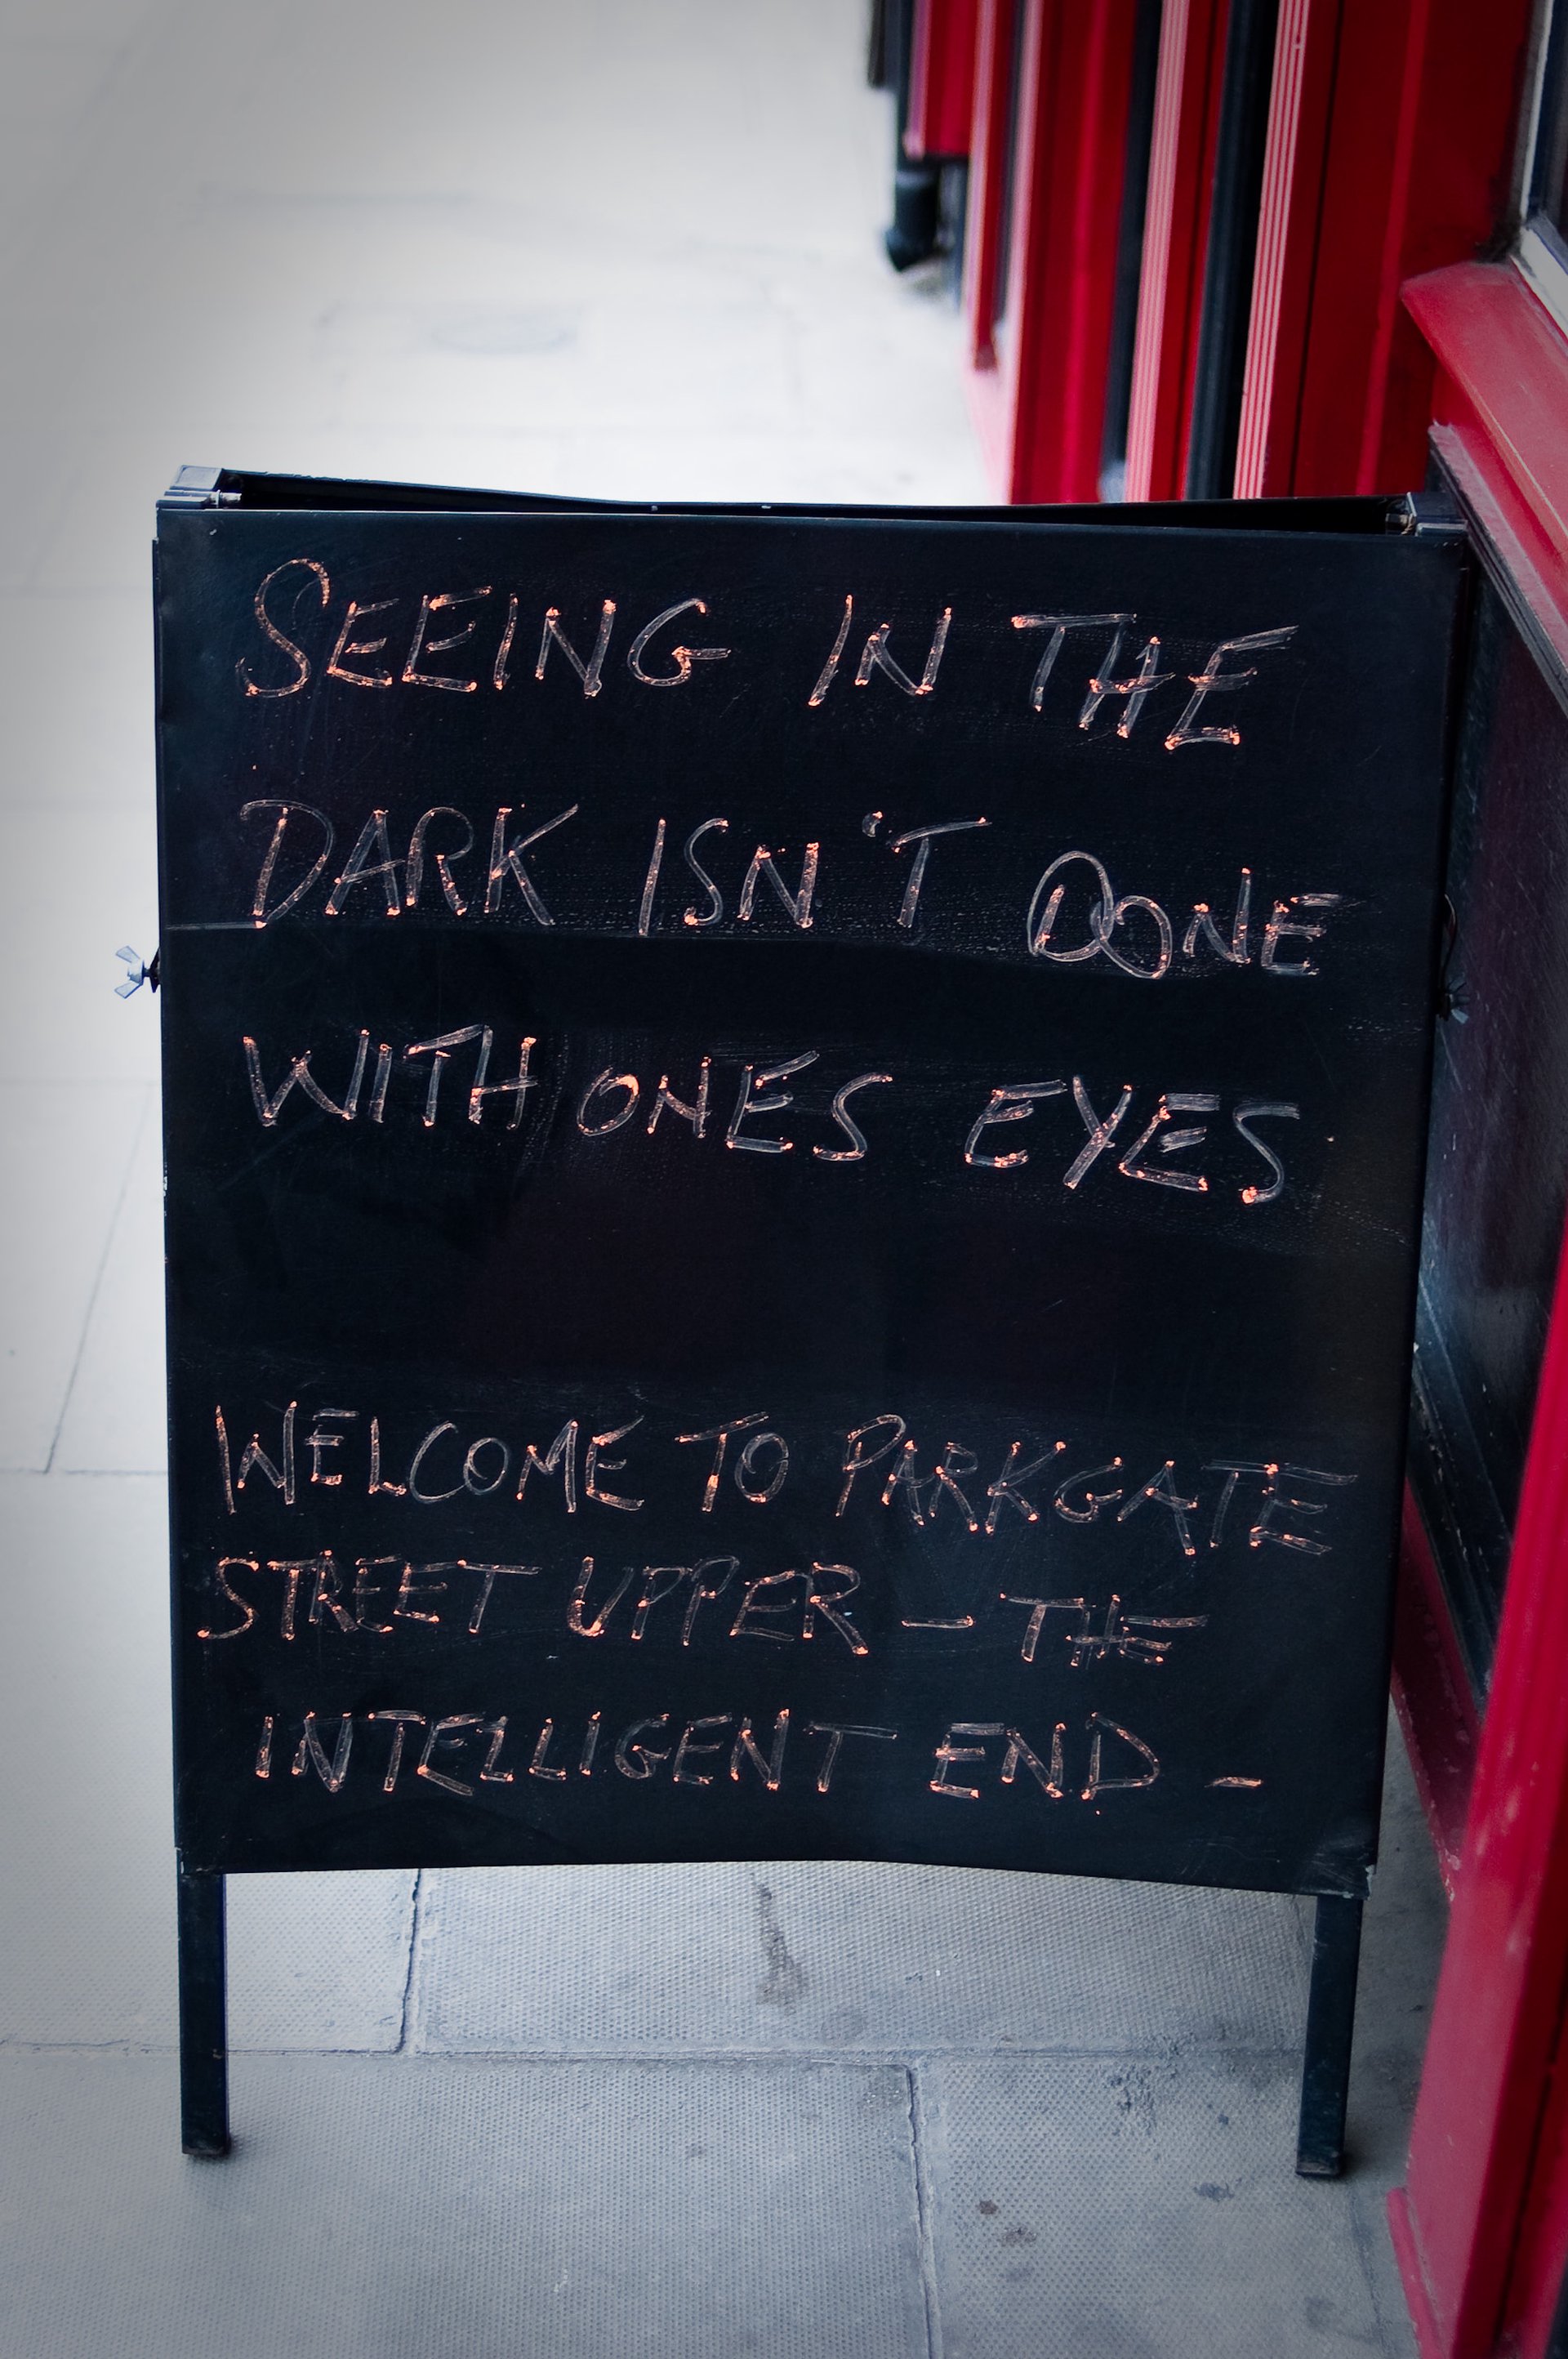 SEEING IN THE
DARK ISN'T DONE
WITH ONES EYES
WELCOME TO PARKGATE
STREET UPPER - THE
INTELLIGENT END -